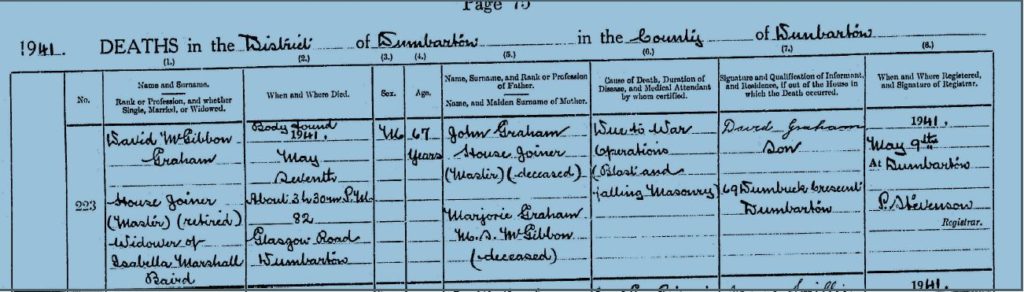 Page 75
1941. DEATHS in the District of Dumbarton in the County of Dumbarton
(1.) (2.) (3.) (4.) (5.) (6.) (7.) (8.)
No.
Name and Surname.
Rank or Profession, and whether
Single, Married, or Widowed.
When and Where Died.
Sex.
Age.
Name, Surname, and Rank or Profession
of Father.
Name, and Maiden Surname of Mother.
Cause of Death, Duration of
Disease, and Medical Attendant
by whom certified.
Signature and Qualification of Informant,
and Residence, if out of the House in
which the Death occurred.
When and Where Registered,
and Signature of Registrar.
223
David McGibbon
Graham
House Joiner
(Master) (retired)
Widower of
Isabella Marshall
Baird
Body found
1941,
May
Seventh
About 3h 30m P.M
82
Glasgow Road
Dumbarton
M
67
Years
John Graham
House Joiner
(Master) (deceased)
Marjorie Graham
M.S. McGibbon
(deceased)
Due to War
Operations
(Blast and
falling Masonry)
David Graham
Son
69 Dumbuck Crescent
Dumbarton
1941,
May 9th
At Dumbarton
P. Stevenson
Registrar.
1941,